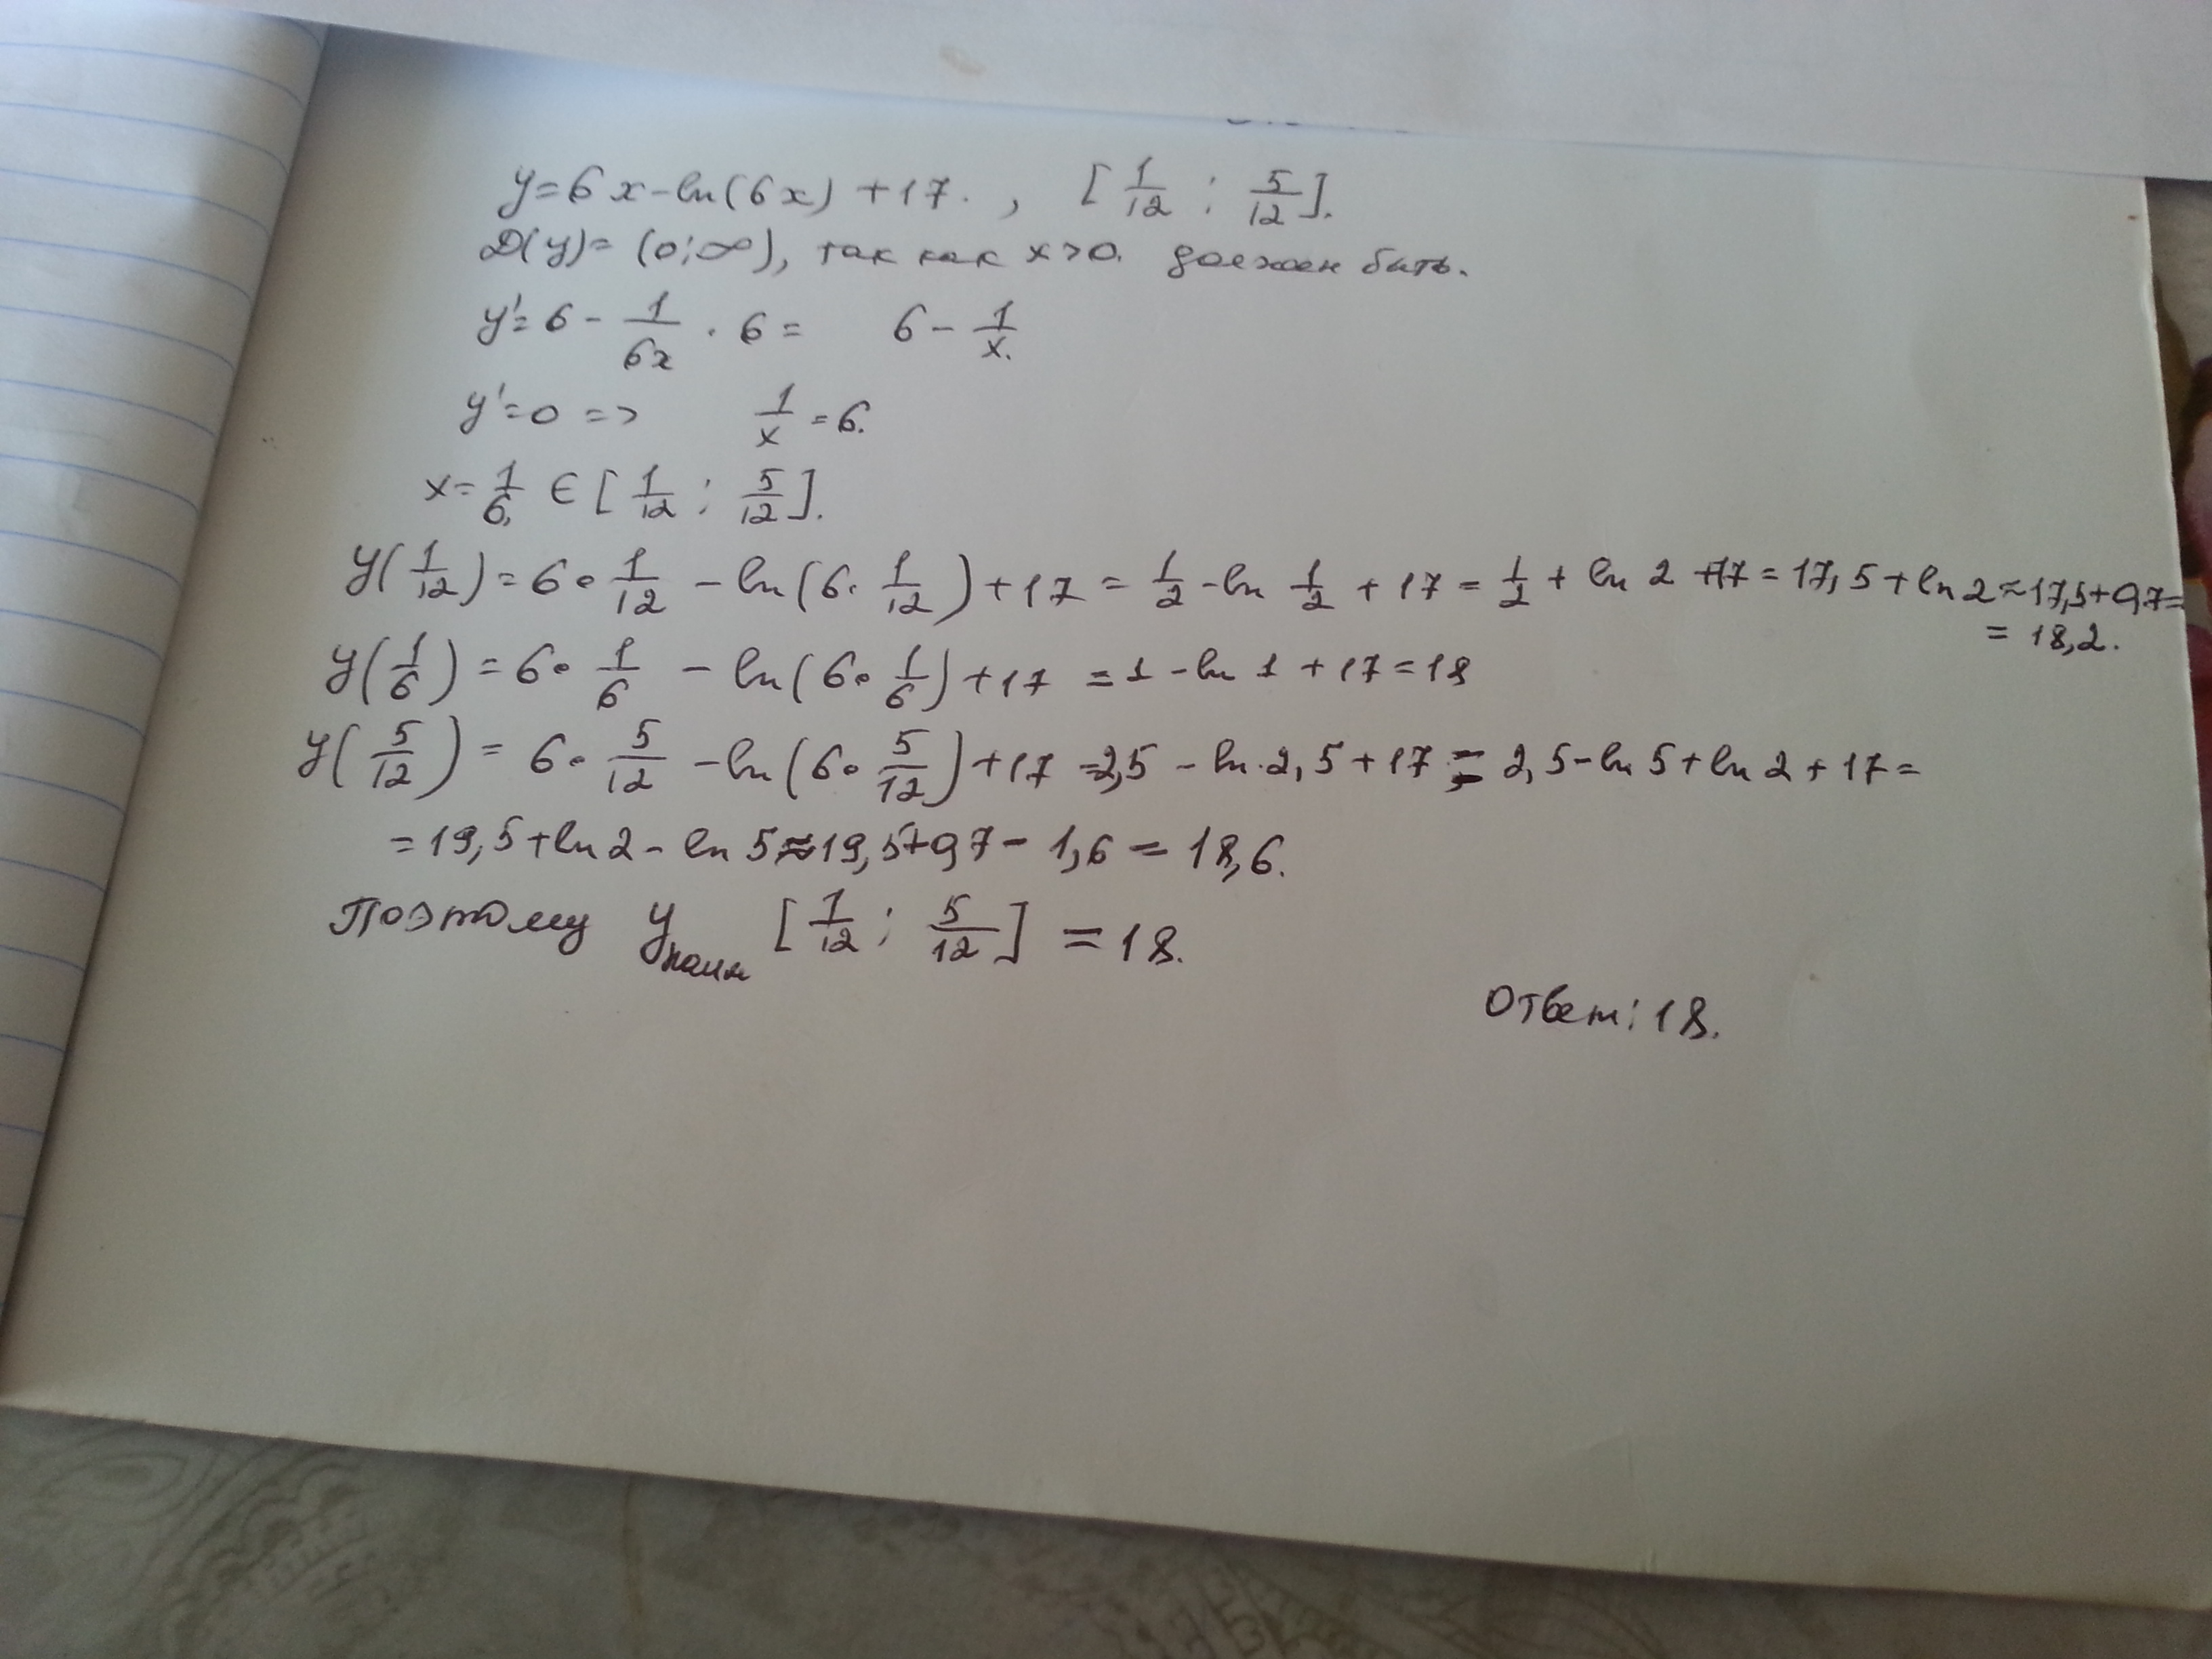 y=6x-ln(6x)+17. , [1/12; 5/12].
D(y)=(0;∞), так как x>0. должен быть.
y'=6-1/6x·6= 6-1/x.
y'=0 => 1/x=6.
x=1/6, ∈[1/12; 5/12].
y(1/12)=6·1/12-ln(6·1/12)+17=1/2-ln 1/2+17=1/2+ln 2+17=17,5+ln 2≈17,5+0,7=
=18,2.
y(1/6)=6·1/6-ln(6·1/6)+17=1-ln 1+17=18
y(5/12)=6·5/12-ln(6·5/12)+17=2,5-ln·2,5+17=2,5-ln 5+ln 2+17=
=19,5+ln 2-ln 5≈19,5+0,7-1,6=18,6.
Поэтому y наим [1/12; 5/12]=18.
Ответ: 18.